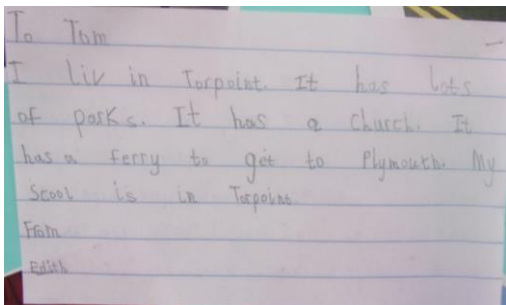 To Tom
I liv in Torpoint. It has lots
of parks. It has a church. It
has a ferry to get to Plymouth. My
Scool is in Torpoint.
From
Edith